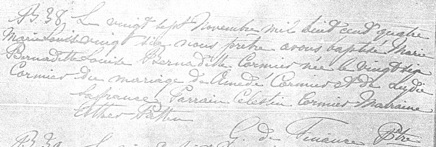 B. 38. Le vingt sept Novembre mil huit cent quatre
Marie Louise vingt dix nous prêtre avons baptisé Marie
Bernadette Louise Bernadette Cormier née le vingt six
Cormier du mariage de Amedé Cormier et de Lydie
Lafrance Parrain Célestin Cormier Marraine
Esther
G. de Finance Ptre